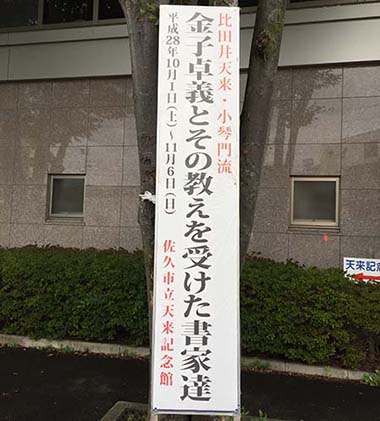 比田井天来・小琴門流
金子卓義とその教えを受けた書家達
平成28年10月1日(土)~11月6日(日)
佐久市立天来記念館
天来記